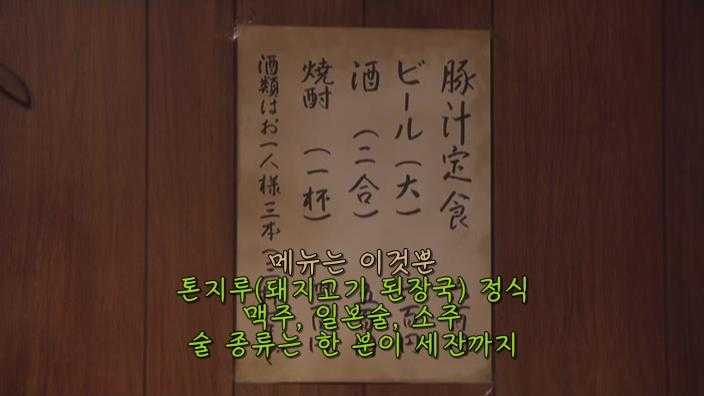 豚汁定食
ビール(大)
酒 (二合)
焼酎 (一杯)
酒類はお一人様三本
메뉴는 이것뿐
톤지루(돼지고기 된장국) 정식
맥주, 일본술, 소주
술 종류는 한 분이 세잔까지